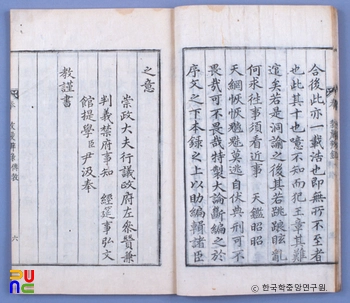 合後此亦一載浩也即無所不至者
也此其十也噫不知而犯王章其難
逭矣若是洞論之後其若跳踉眩亂
何求往事須看近事 天鑑昭昭
天網恢恢魑魅莫逃自休典刑可不
畏哉可不畏哉特製大論斷編之於
序文之下本錄之上以助編輯諸臣
之意
崇政大夫行議政府左參贊兼
判義禁府事知 經筵事弘文
館提學臣尹汲奉
教謹書
六
© 한국학중앙연구원